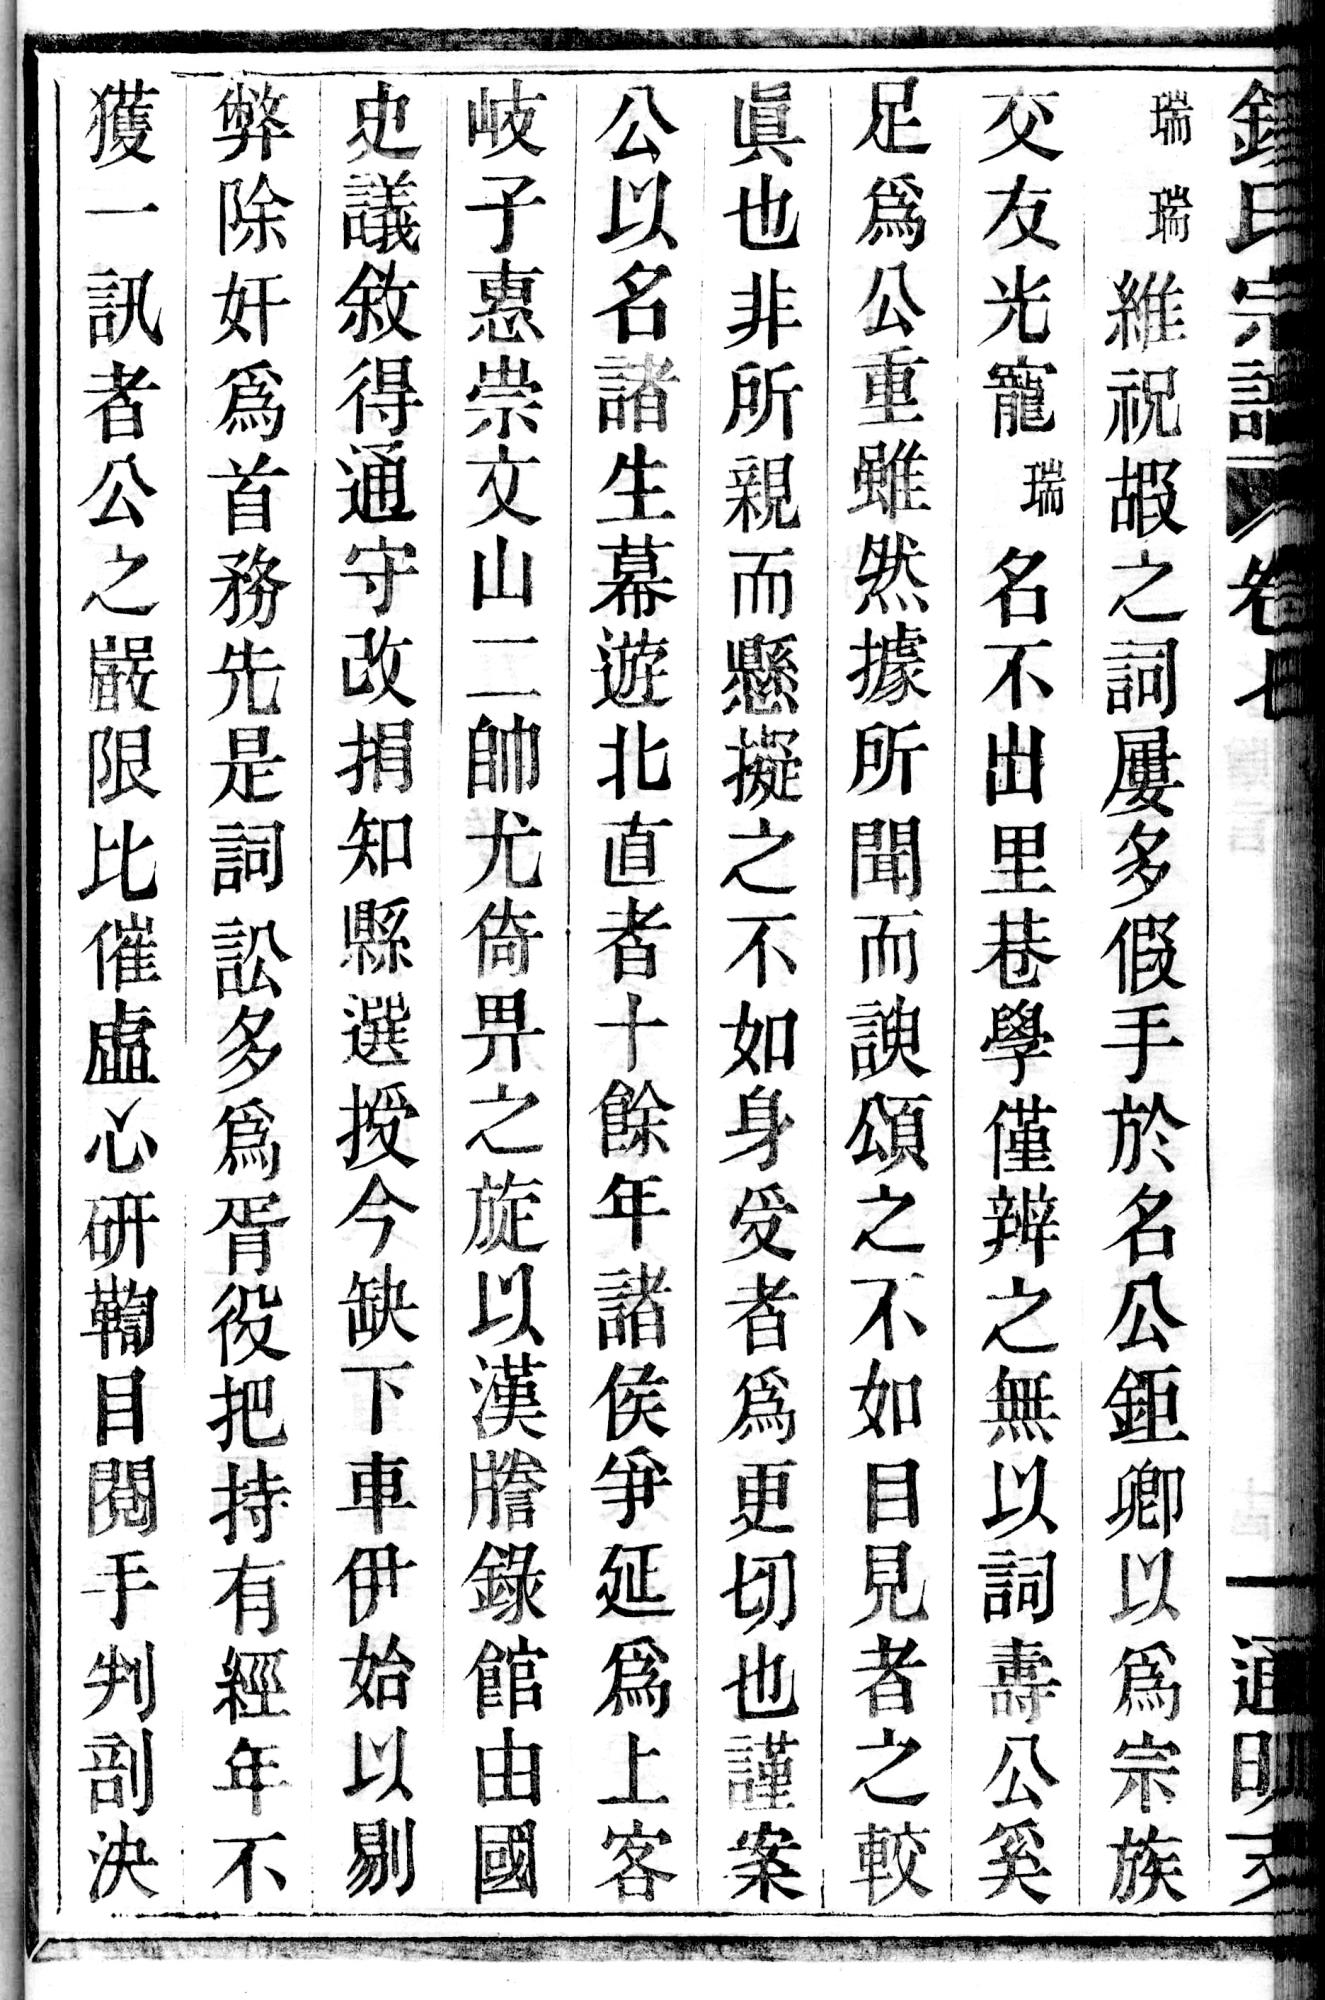 氏宗譜 卷七 通明
瑞瑞維祝嘏之詞屢多假手於名公鉅卿以爲宗族
交友光寵瑞名不出里巷學僅辨之無以詞壽公奚
足爲公重雖然據所聞而諛頌之不如目見者之較
眞也非所親而懸擬之不如身受者爲更切也謹案
公以名諸生幕遊北直者十餘年諸侯爭延爲上客
岐子惠崇文山二帥尤倚畀之旋以漢謄錄館由國
史議敘得通守改捐知縣選授今缺下車伊始以剔
弊除奸爲首務先是詞訟多爲胥役把持有經年不
獲一訊者公之嚴限比催虛心研鞫目閱手判剖決